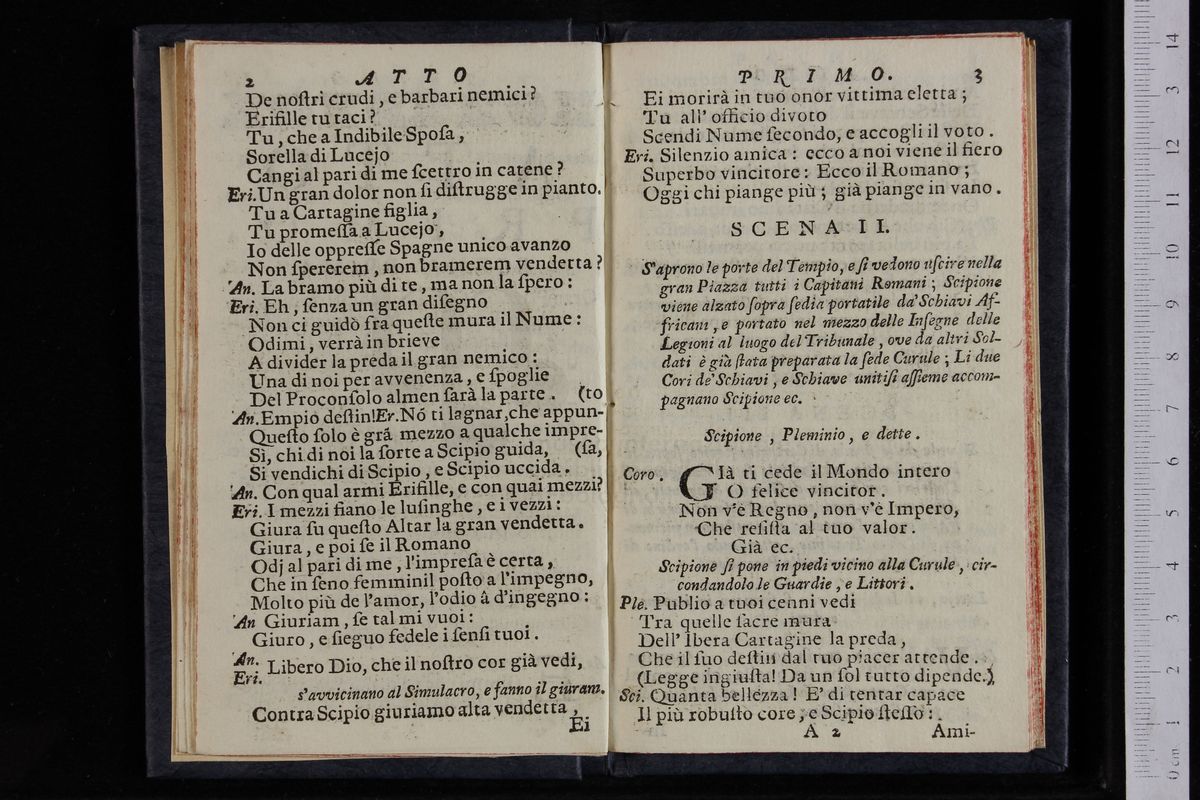 2 ATTO
De noſtri crudi, e barbari nemici?
Erifille tu taci?
Tu, che a Indibile Spoſa,
Sorella di Lucejo
Cangi al pari di me ſcettro in catene?
Eri. Un gran dolor non ſi diſtrugge in pianto.
Tu a Cartagine figlia,
Tu promeſſa a Lucejo,
Io delle oppreſſe Spagne unico avanzo
Non ſpererem, non bramerem vendetta?
An. La bramo più di te, ma non la ſpero:
Eri. Eh, ſenza un gran diſegno
Non ci guidò fra queſte mura il Nume:
Odimi, verrà in brieve
A divider la preda il gran nemico:
Una di noi per avvenenza, e ſpoglie
Del Proconſolo almen ſarà la parte. (to
An. Empio deſtin! Er. Nó ti lagnar, che appun-
Queſto ſolo è grã mezzo a qualche impre-
Sì, chi di noi la ſorte a Scipio guida, (ſa,
Si vendichi di Scipio, e Scipio uccida.
An. Con qual armi Erifille, e con quai mezzi?
Eri. I mezzi fiano le luſinghe, e i vezzi:
Giura ſu queſto Altar la gran vendetta.
Giura, e poi ſe il Romano
Odj al pari di me, l'impreſa è certa,
Che in ſeno femminil poſto a l'impegno,
Molto più de l'amor, l'odio â d'ingegno:
An Giuriam, ſe tal mi vuoi:
Giuro, e ſieguo fedele i ſenſi tuoi.
An.
Eri. Libero Dio, che il noſtro cor già vedi,
s'avvicinano al Simulacro, e fanno il giuram.
Contra Scipio giuriamo alta vendetta,
Ei
PRIMO. 3
Ei morirà in tuo onor vittima eletta;
Tu all' officio divoto
Scendi Nume ſecondo, e accogli il voto.
Eri. Silenzio amica: ecco a noi viene il fiero
Superbo vincitore: Ecco il Romano;
Oggi chi piange più; già piange in vano.
SCENA II.
S'aprono le porte del Tempio, e ſi vedono uſcire nella
gran Piazza tutti i Capitani Romani; Scipione
viene alzato ſopra ſedia portatile da' Schiavi Af-
fricani, e portato nel mezzo delle Inſegne delle
Legioni al luogo del Tribunale, ove da altri Sol-
dati è già ſtata preparata la ſede Curule; Li due
Cori de' Schiavi, e Schiave unitiſi aſſieme accom-
pagnano Scipione ec.
Scipione, Pleminio, e dette.
Coro. GIà ti cede il Mondo intero
O felice vincitor.
Non v'è Regno, non v'è Impero,
Che reſiſta al tuo valor.
Già ec.
Scipione ſi pone in piedi vicino alla Curule, cir-
condandolo le Guardie, e Littori.
Ple. Publio a tuoi cenni vedi
Tra quelle ſacre mura
Dell' Ibera Cartagine la preda,
Che il ſuo deſtin dal tuo piacer attende.
(Legge ingiuſta! Da un ſol tutto dipende.)
Sci. Quanta bellezza! E' di tentar capace
Il più robuſto core, e Scipio ſteſſo:
A 2 Ami-
0 cm 1 2 3 4 5 6 7 8 9 10 11 12 3 14